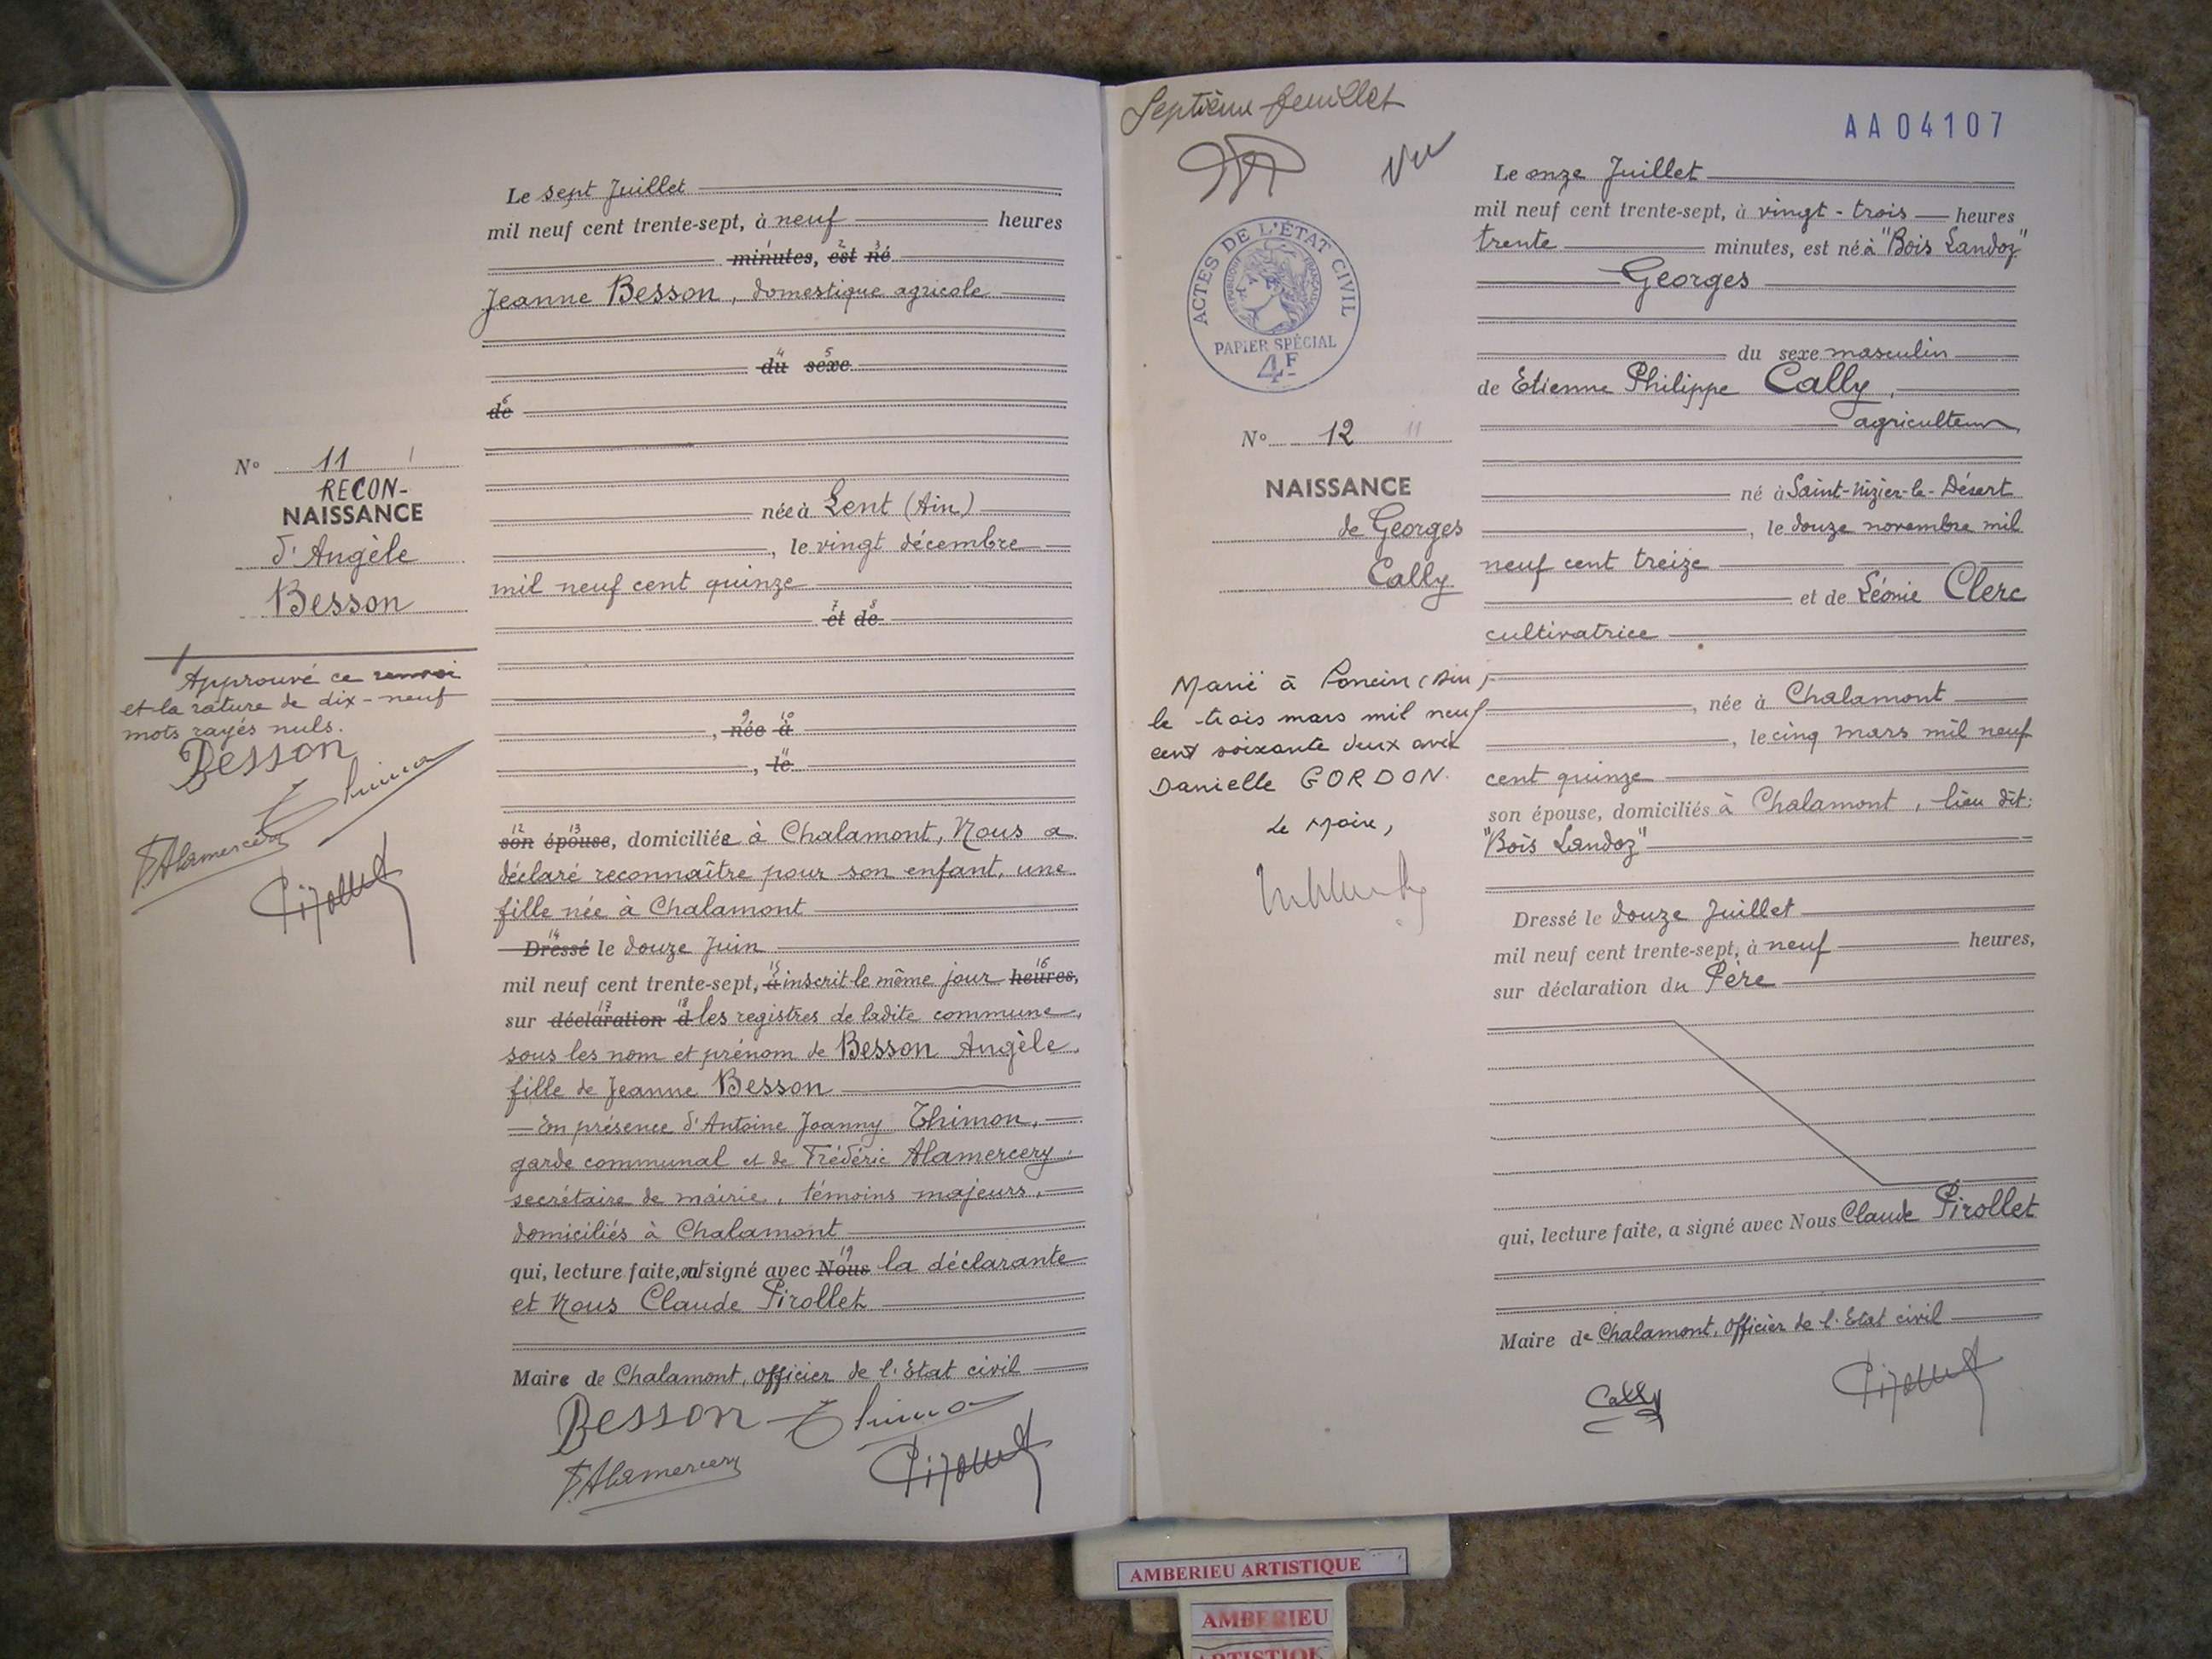 Le sept Juillet
mil neuf cent trente-sept, à neuf heures
minutes, est né
Jeanne Besson, domestique agricole
du sexe
de
née à Lent (Ain)
, le vingt décembre
mil neuf cent quinze
et de
, née à
, le
son épouse, domiciliée à Chalamont, Nous a
déclaré reconnaître pour son enfant, une
fille née à Chalamont
Dressé le douze Juin
mil neuf cent trente-sept, à inscrit le même jour heures,
sur déclaration d les registres de ladite commune,
sous les nom et prénom de Besson Angèle,
fille de Jeanne Besson
En présence d'Antoine Joanny Thimon,
garde communal et de Frédéric Alamercery,
secrétaire de mairie, témoins majeurs,
domiciliés à Chalamont
qui, lecture faite, ont signé avec Nous la déclarante
et Nous Claude Pirollet
Maire de Chalamont, Officier de l'Etat civil
Besson Thimon
F. Alamercery Pirollet
N° 11
RECON-
NAISSANCE
d'Angèle
Besson
Approuvé ce renvoi
et la rature de dix-neuf
mots rayés nuls.
Besson
Thimon
F. Alamercery
Pirollet
Septième feuillet
Vu
AA04107
ACTES DE L'ÉTAT CIVIL
RÉPUBLIQUE FRANÇAISE
PAPIER SPÉCIAL
4F
N° 12 11
NAISSANCE
de Georges
Cally
Marié à Poncin (Ain)
le trois mars mil neuf
cent soixante deux avec
Danielle GORDON.
Le Maire,
Le onze Juillet
mil neuf cent trente-sept, à vingt-trois heures
trente minutes, est né à "Bois Landoz"
Georges
du sexe masculin
de Etienne Philippe Cally,
agriculteur
né à Saint-Nizier-le-Désert
, le douze novembre mil
neuf cent treize
et de Léonie Clerc
cultivatrice
, née à Chalamont
, le cinq mars mil neuf
cent quinze
son épouse, domiciliés à Chalamont, lieu dit:
"Bois Landoz"
Dressé le douze Juillet
mil neuf cent trente-sept, à neuf heures,
sur déclaration du Père
qui, lecture faite, a signé avec Nous Claude Pirollet
Maire de Chalamont, Officier de l'Etat civil
Cally Pirollet
AMBERIEU ARTISTIQUE
AMBERIEU
ARTISTIQUE